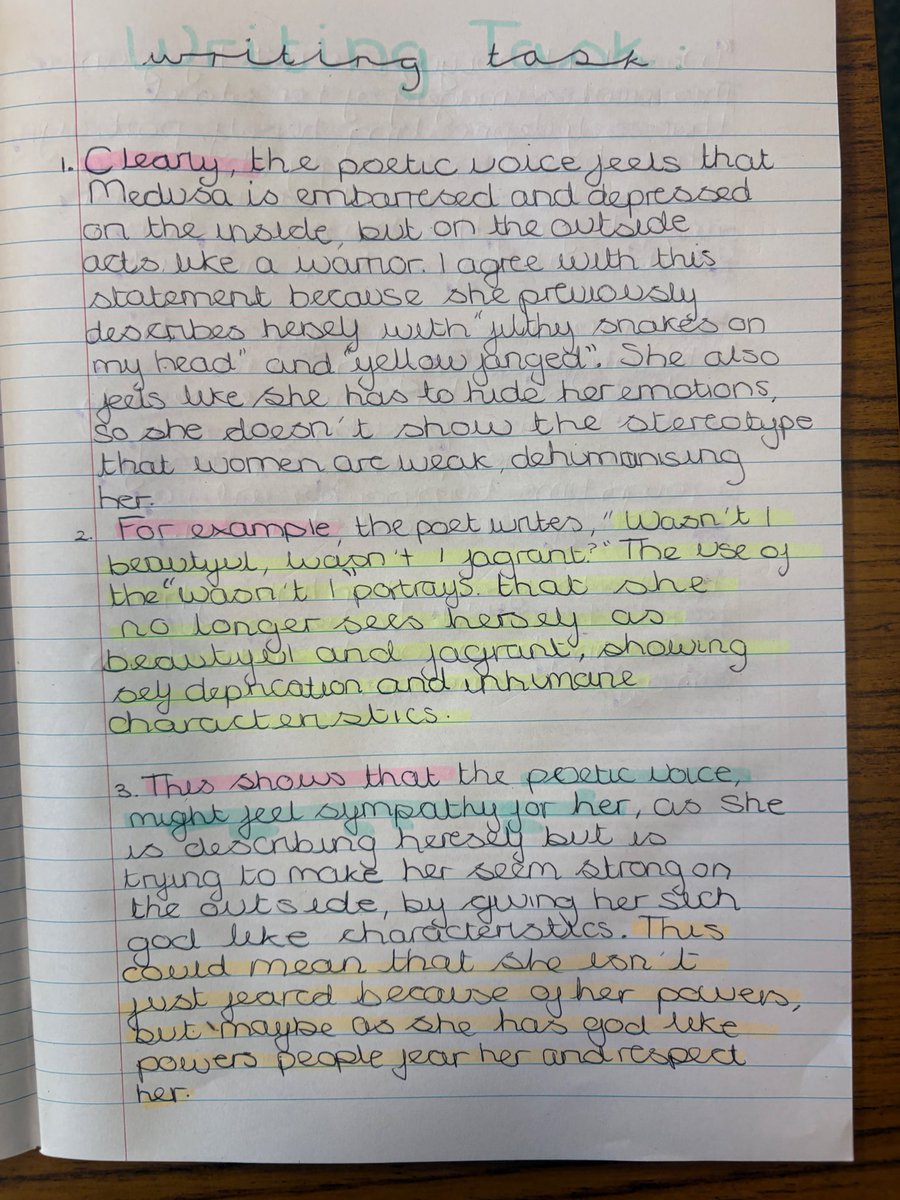 Writing Task
writing task
1. Cleary, the poetic voice feels that
Medusa is embarresed and depressed
on the inside, but on the outside
acts like a warrior. I agree with this
statement because she previously
describes herself with "filthy snakes on
my head" and "yellow fanged". She also
feels like she has to hide her emotions,
so she doesn't show the stereotype
that women are weak, dehumanising
her.
2. For example, the poet writes, "Wasn't I
beautyful, wasn't I fagrant?" The use of
the "wasn't I" portrays that she
no longer sees herself as
beautyful and fagrant, showing
self deprication and inhumane
characteristics.
3. This shows that the poetic voice,
might feel sympathy for her, as she
is describing hereself but is
trying to make her seem strong on
the outside, by giving her sich
god like characteristics. This
could mean that she isn't
just feared because of her powers,
but maybe as she has god like
powers people fear her and respect
her.